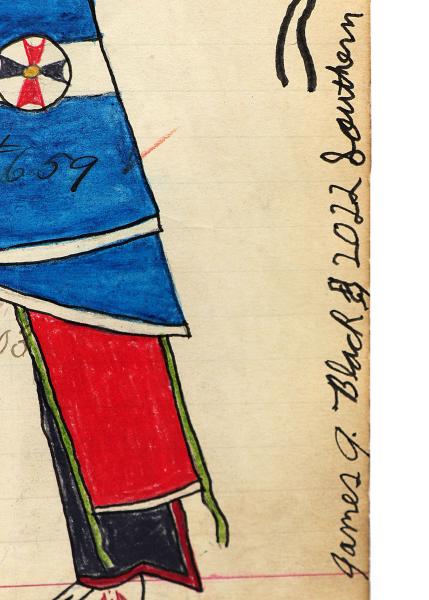 659
James J. Black # 2022 Southern